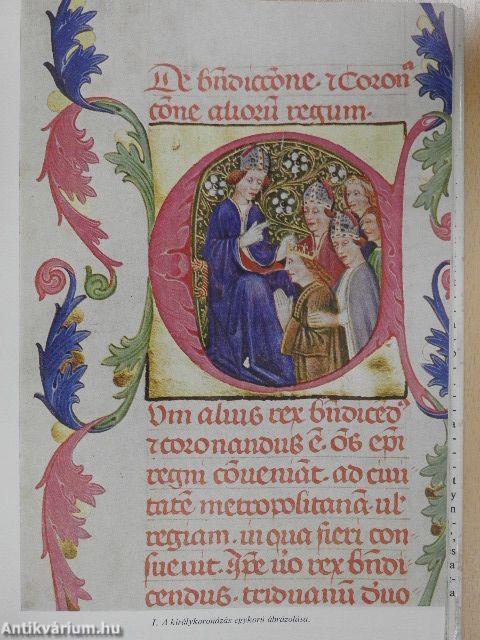 De bn̄diccōne · ⁊ Coronᵃ
cōne aliorū regum ·
Cum aliuis rex bn̄diced᾿
⁊ coronandus ē. oēs ep̄i
regni cōueniāt · ad ciui
tatē metropolitanā ul᾿
regiam · in qua fieri con
sueuit. Ip̄e u̅o rex bn̄di
cendus · triduanū d᾿uo
1. A királykoronázás egykorú ábrázolása.
Antikvárium.hu
Antikvárium.hu